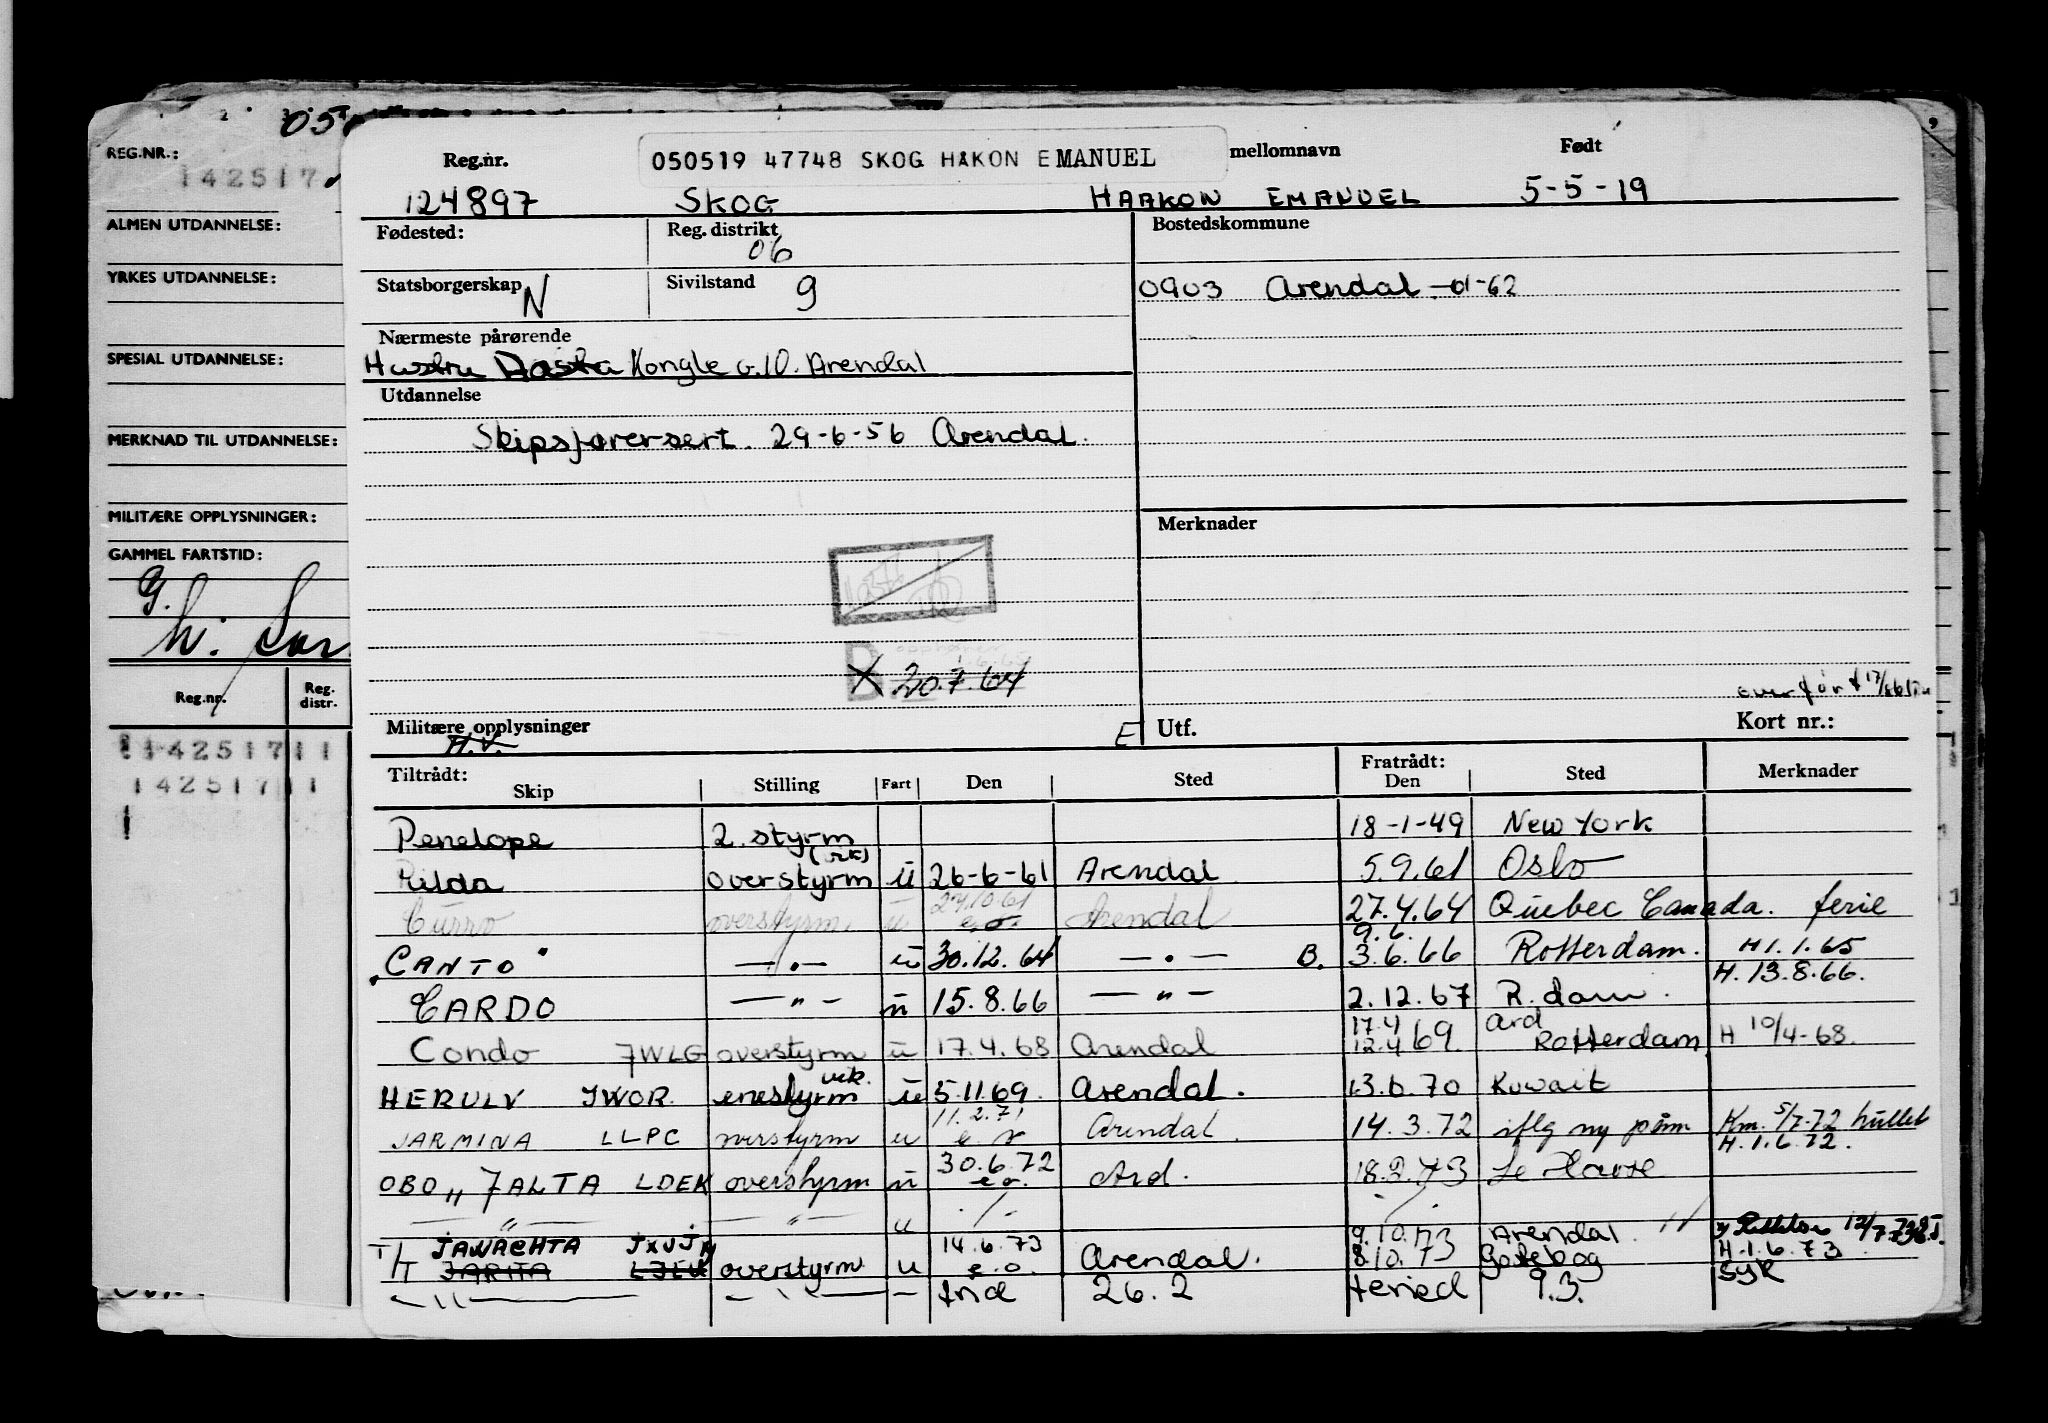 05
REG.NR.:
142517
ALMEN UTDANNELSE:
YRKES UTDANNELSE:
SPESIAL UTDANNELSE:
MERKNAD TIL UTDANNELSE:
MILITÆRE OPPLYSNINGER:
GAMMEL FARTSTID:
G.
Reg.nr. Reg. distr.
142517 11
142517 11
Reg.nr. 050519 47748 SKOG HAKON EMANUEL mellomnavn Født
124897 SKOG HAAKON EMANUEL 5-5-19
Fødested: Reg. distrikt 06 Bostedskommune
Statsborgerskap N Sivilstand 9 0903 Arendal 01-62
Nærmeste pårørende
Hustru Kongle v.10. Arendal
Utdannelse
Skipsførersert. 29-6-56 Arendal.
Merknader
B 20.7.64
overført
Militære opplysninger E Utf. Kort nr.:
H.V.
Tiltrådt: Fratrådt:
Skip Stilling Fart Den Sted Den Sted Merknader
Penelope 2. styrm 18-1-49 New York
Rilda overstyrm u 26-6-61 Arendal 5.9.61 Oslo
Curro overstyrm u 27.10.61 e.o. Arendal 27.4.64 Quebec Canada. ferie
"CANTO" — . — u 30.12.64 — . — B. 9.6. 3.6.66 Rotterdam. H 1.1.65
CARDO — " — u 15.8.66 — " — 2.12.67 R.dam. H. 13.8.66.
Condo JWLG overstyrm u 17.4.68 Arendal 17.4 12.4 69 Ard Rotterdam H 10/4-68.
HERULV JWOR enestyrm vik. u 5.11.69. Arendal. 13.6.70 Kuwait
JARMINA LLPC overstyrm u 11.2.71 Arendal. 14.3.72 iflg ny påm Km. 5/7-72 hullet
H. 1.6.72.
OBO "JALTA LDEK overstyrm u 30.6.72 e.o. Ard. 18.2.73 Le Havre
— " — — " — u
T/T JAWACHTA JXUJ JARITA overstyrm u 14.6.73 e.o. Arendal. 9.10.73 Arendal 8.10.73 Gøteborg H. 1.6.73 syk
— " — — " — — tnd 26.2 feried 9.3.